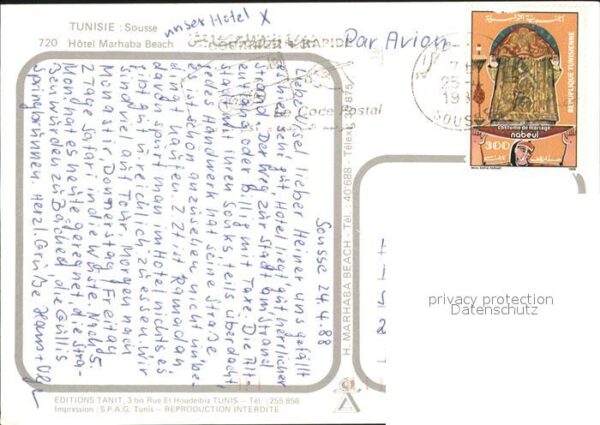 TUNISIE : Sousse
720 Hôtel Marhaba Beach
unser Hotel X
Par Avion
COURRIER + RAPIDE
le Code Postal
25
19
SOUSS
REPUBLIQUE TUNISIENNE
costume de mariage
nabeul
300
Sousse 24.4.88
Liebe Ursel lieber Heiner uns gefällt
es hier sehr gut, Hotel liegt gut, herrlicher
Strand. Der Weg zur Stadt am Strand
entlang oder billig mit Taxe. Die Alt-
stadt mit ihren Souks teils überdacht,
jedes Handwerk hat seine Straße,
es ist schön anzusehen nicht unbe-
dingt kaufen. Z. Zt ist Ramadan,
davon spürt man im Hotel nichts es
gibt gut u. reichlich zu essen. Wir
sind viel auf Tour, Morgen nach
Monastir, Donnerstag / Freitag
2 Tage Safari in die Wüste. Nach 5.
Monat. hat es heute geregnet die Stra-
ßen wurden zu Bächen, die Gullis
Springbrunnen. Herzl. Grüße Hanns +
H. MARHABA BEACH - Tél : 40 688 - Télex : 30875
privacy protection
Datenschutz
EDITIONS TANIT, 3 bis Rue El Houdeibia TUNIS – Tél. : 255 856
Impression : S.P.A.G. Tunis – REPRODUCTION INTERDITE